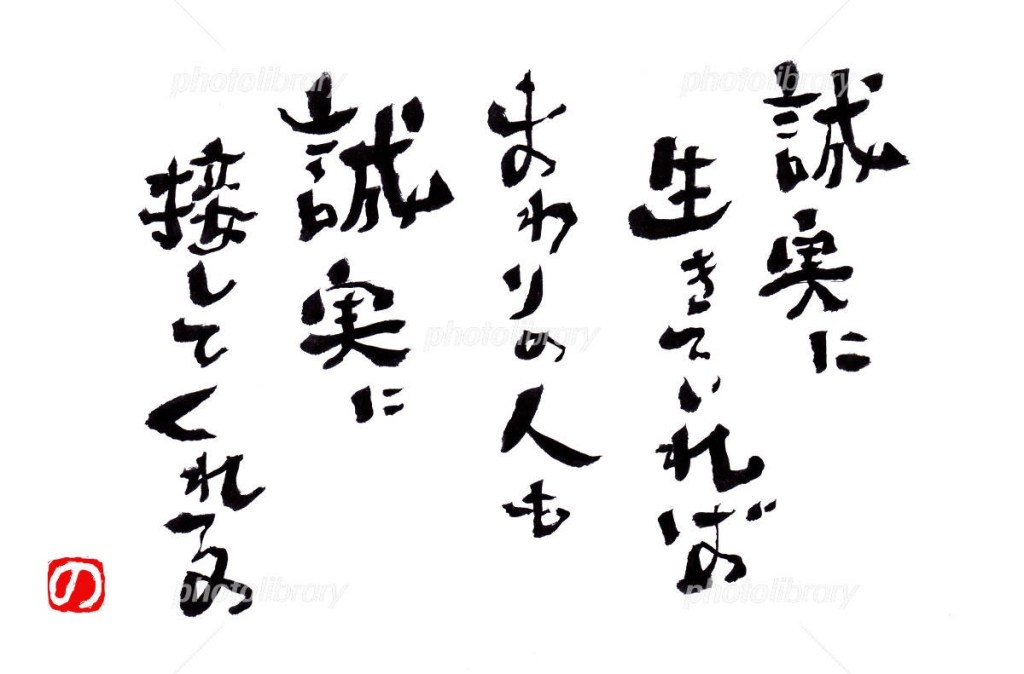 誠実に
生きていれば
まわりの人も
誠実に
接してくれる
の
photolibrary
photolibrary
photolibrary
photolibrary
photolibrary